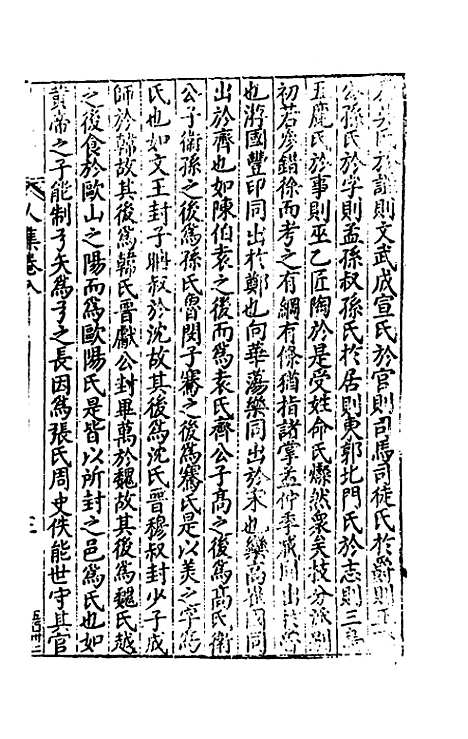 氏於謚則文武成宣氏於官則司馬司徒氏於爵則王
公孫氏於字則孟孫叔孫氏於居則東郭北門氏於志則三烏
五鹿氏於事則巫乙匠陶於是受姓命氏燦然衆矣枝分派別
初若膠錯徐而考之有綱有條猶指諸掌孟仲季臧同出
也游國豐印同出於鄭也向華蕩樂同出於宋也欒高崔國同
出於齊也如陳伯袁之後而爲袁氏齊公子高之後爲高氏衛
公子衛孫之後爲孫氏魯閔子騫之後爲騫氏是以美之字爲
氏也如文王封子聃叔於沈故其後爲沈氏晉穆叔封少子成
師於韓故其後爲韓氏晉獻公封畢萬於魏故其後爲魏氏越
之後食於歐山之陽而爲歐陽氏是皆以所封之邑爲氏也如
黃帝之子能制弓矢爲弓之長因爲張氏周史佚能世守其官
人集卷八